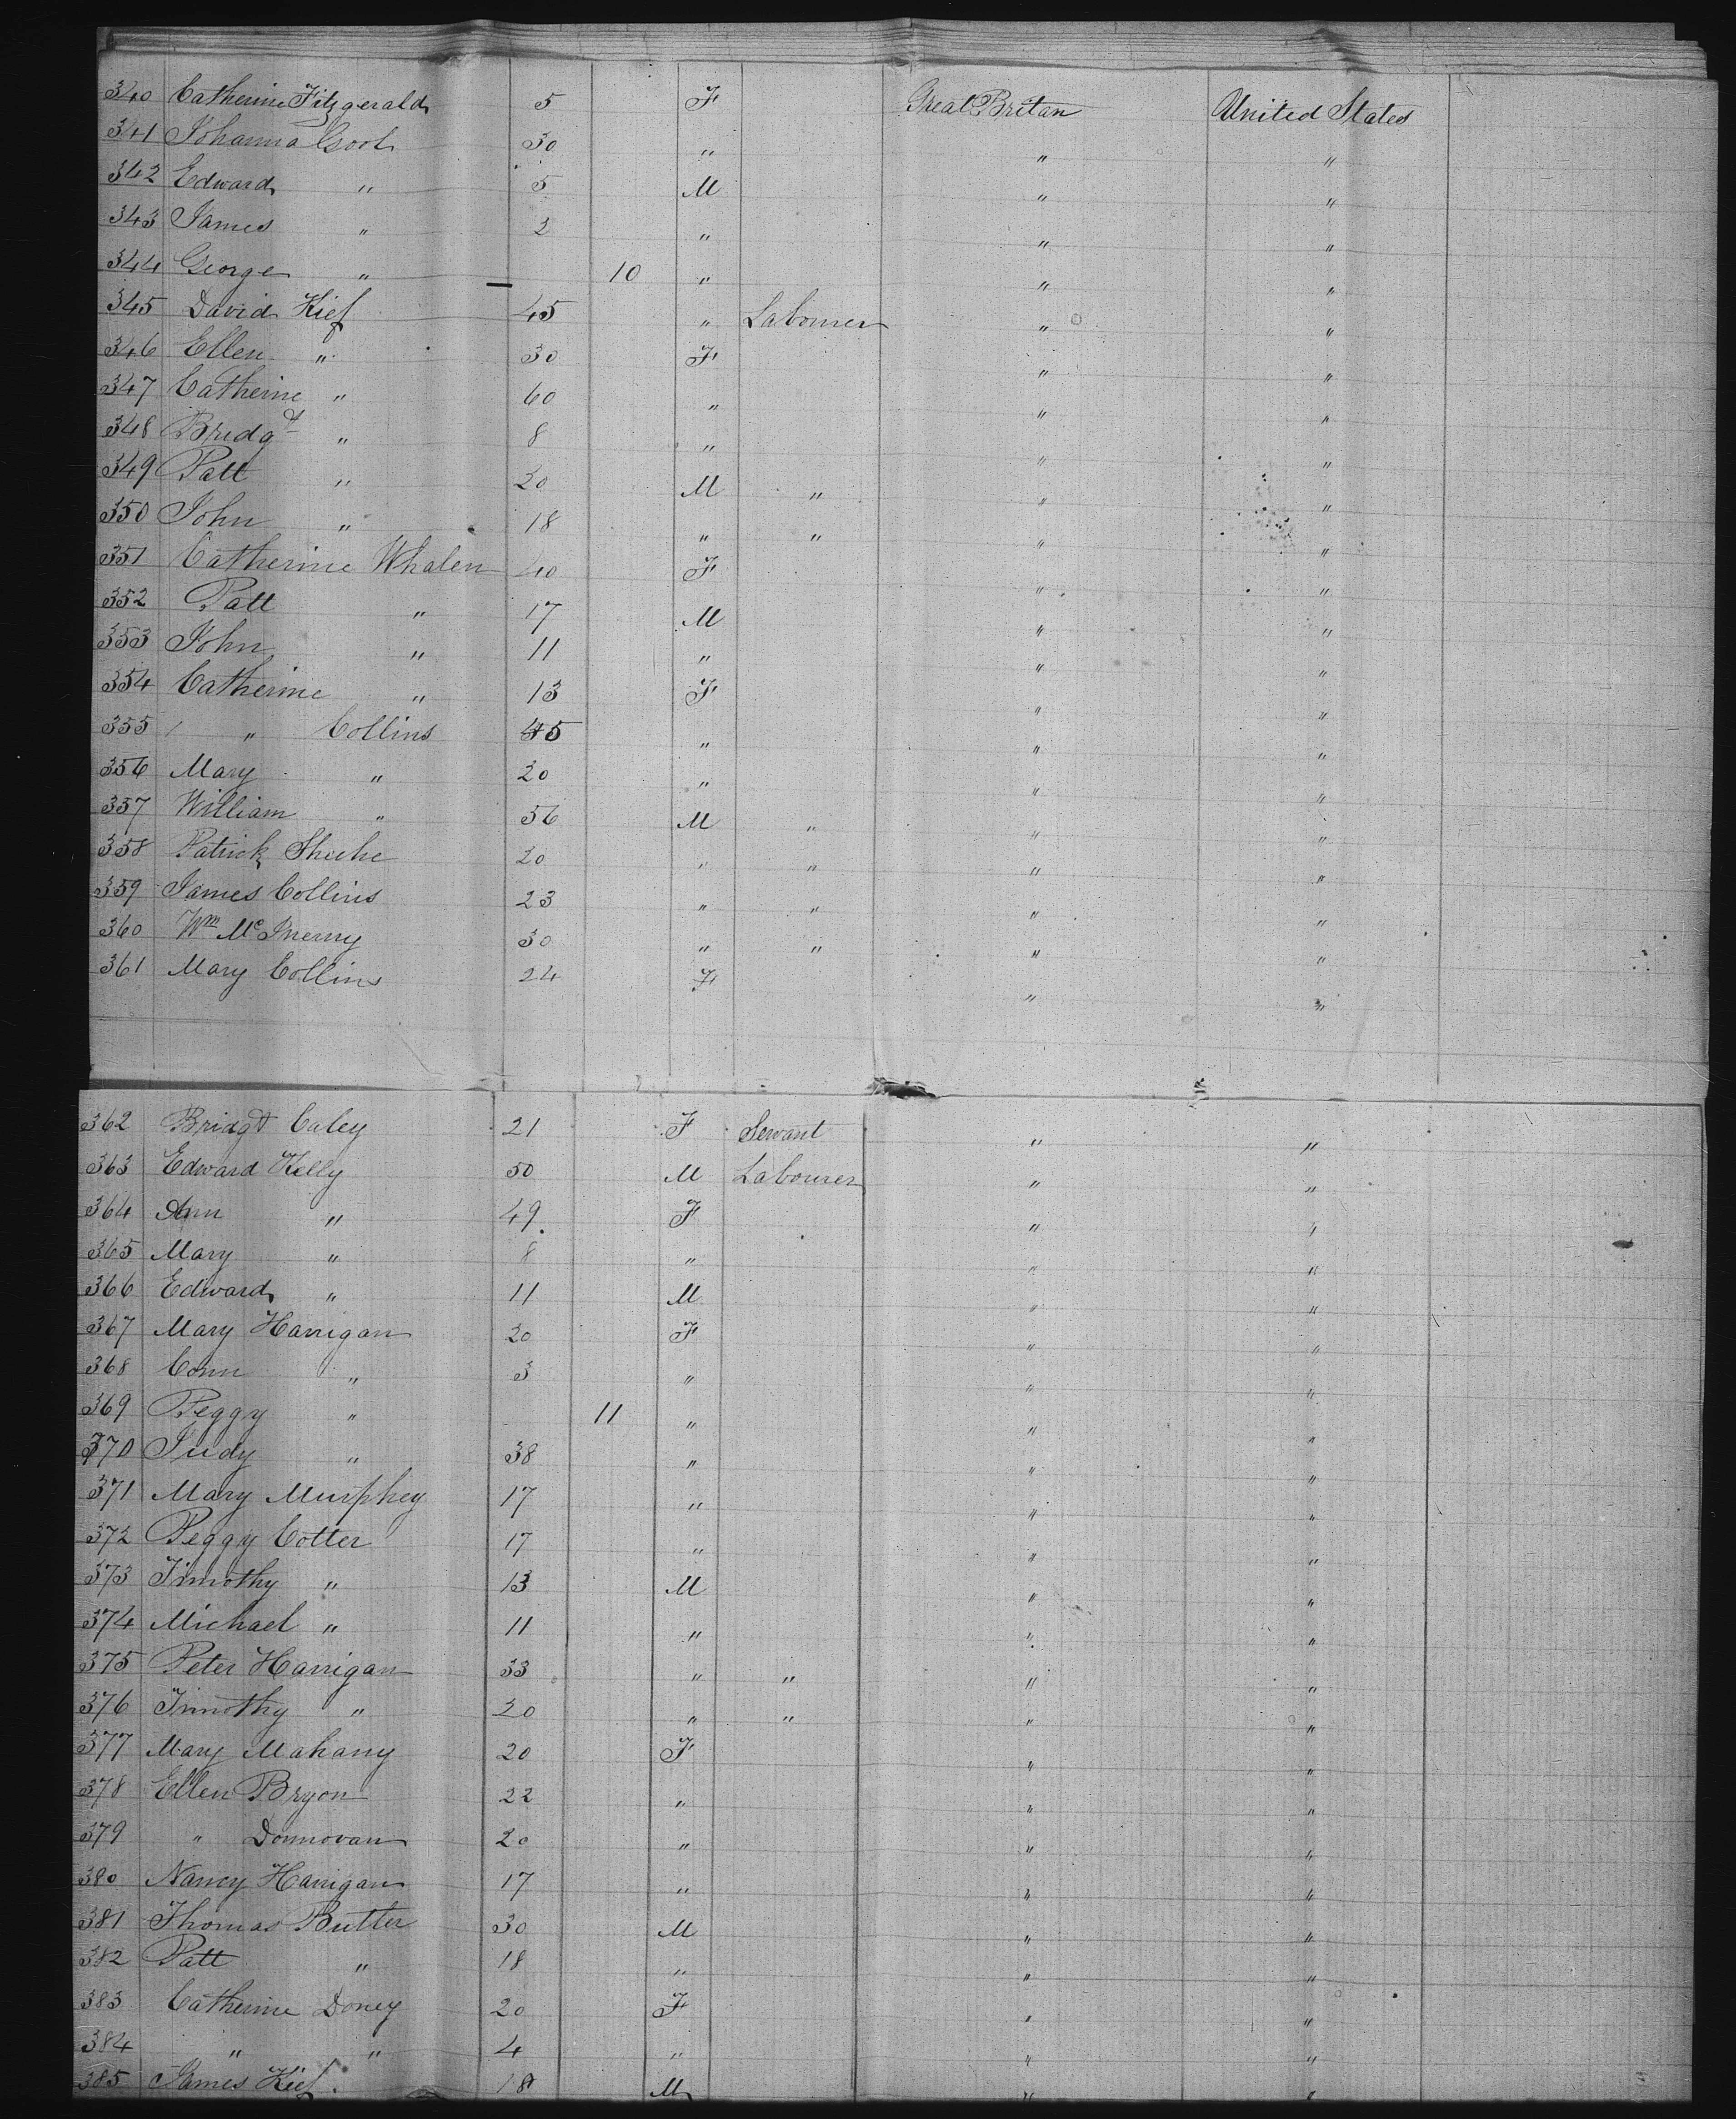 340 Catherine Fitzgerald 5 F Great Britan United States
341 Johanna 30 " " "
342 Edward " 5 M " "
343 James " 2 " " "
344 George " 10 " " "
345 David Kief 45 " Labourer " "
346 Ellen " 30 F " "
347 Catherine " 60 " " "
348 Bridgt " 8 " " "
349 Patt " 20 M " " "
350 John " 18 " " " "
351 Catherine Whalen 40 F " "
352 Patt " 17 M " "
353 John " 11 " " "
354 Catherine " 13 F " "
355 " Collins 45 " " "
356 Mary " 20 " " "
357 William " 56 M " " "
358 Patrick Sheehe 20 " " " "
359 James Collins 23 " " " "
360 Wm McInerny 30 " " " "
361 Mary Collins 24 F " "
362 Bridgt Caley 21 F Servant " "
363 Edward Kelly 50 M Labourer " "
364 Ann " 49 F " "
365 Mary " 8 " " "
366 Edward " 11 M " "
367 Mary Harrigan 20 F " "
368 Conn " 3 " " "
369 Peggy " 11 " " "
370 Judy " 38 " " "
371 Mary Murphey 17 " " "
372 Peggy Cotter 17 " " "
373 Timothy " 13 M " "
374 Michael " 11 " " "
375 Peter Harrigan 33 " " " "
376 Timothy " 20 " " " "
377 Mary Mahany 20 F " "
378 Ellen Bryon 22 " " "
379 " Donnovan 20 " " "
380 Nancy Harrigan 17 " " "
381 Thomas Butler 30 M " "
382 Patt " 18 " " "
383 Catherine Doney 20 F " "
384 " " 4 " " "
385 James Kief 18 M " "